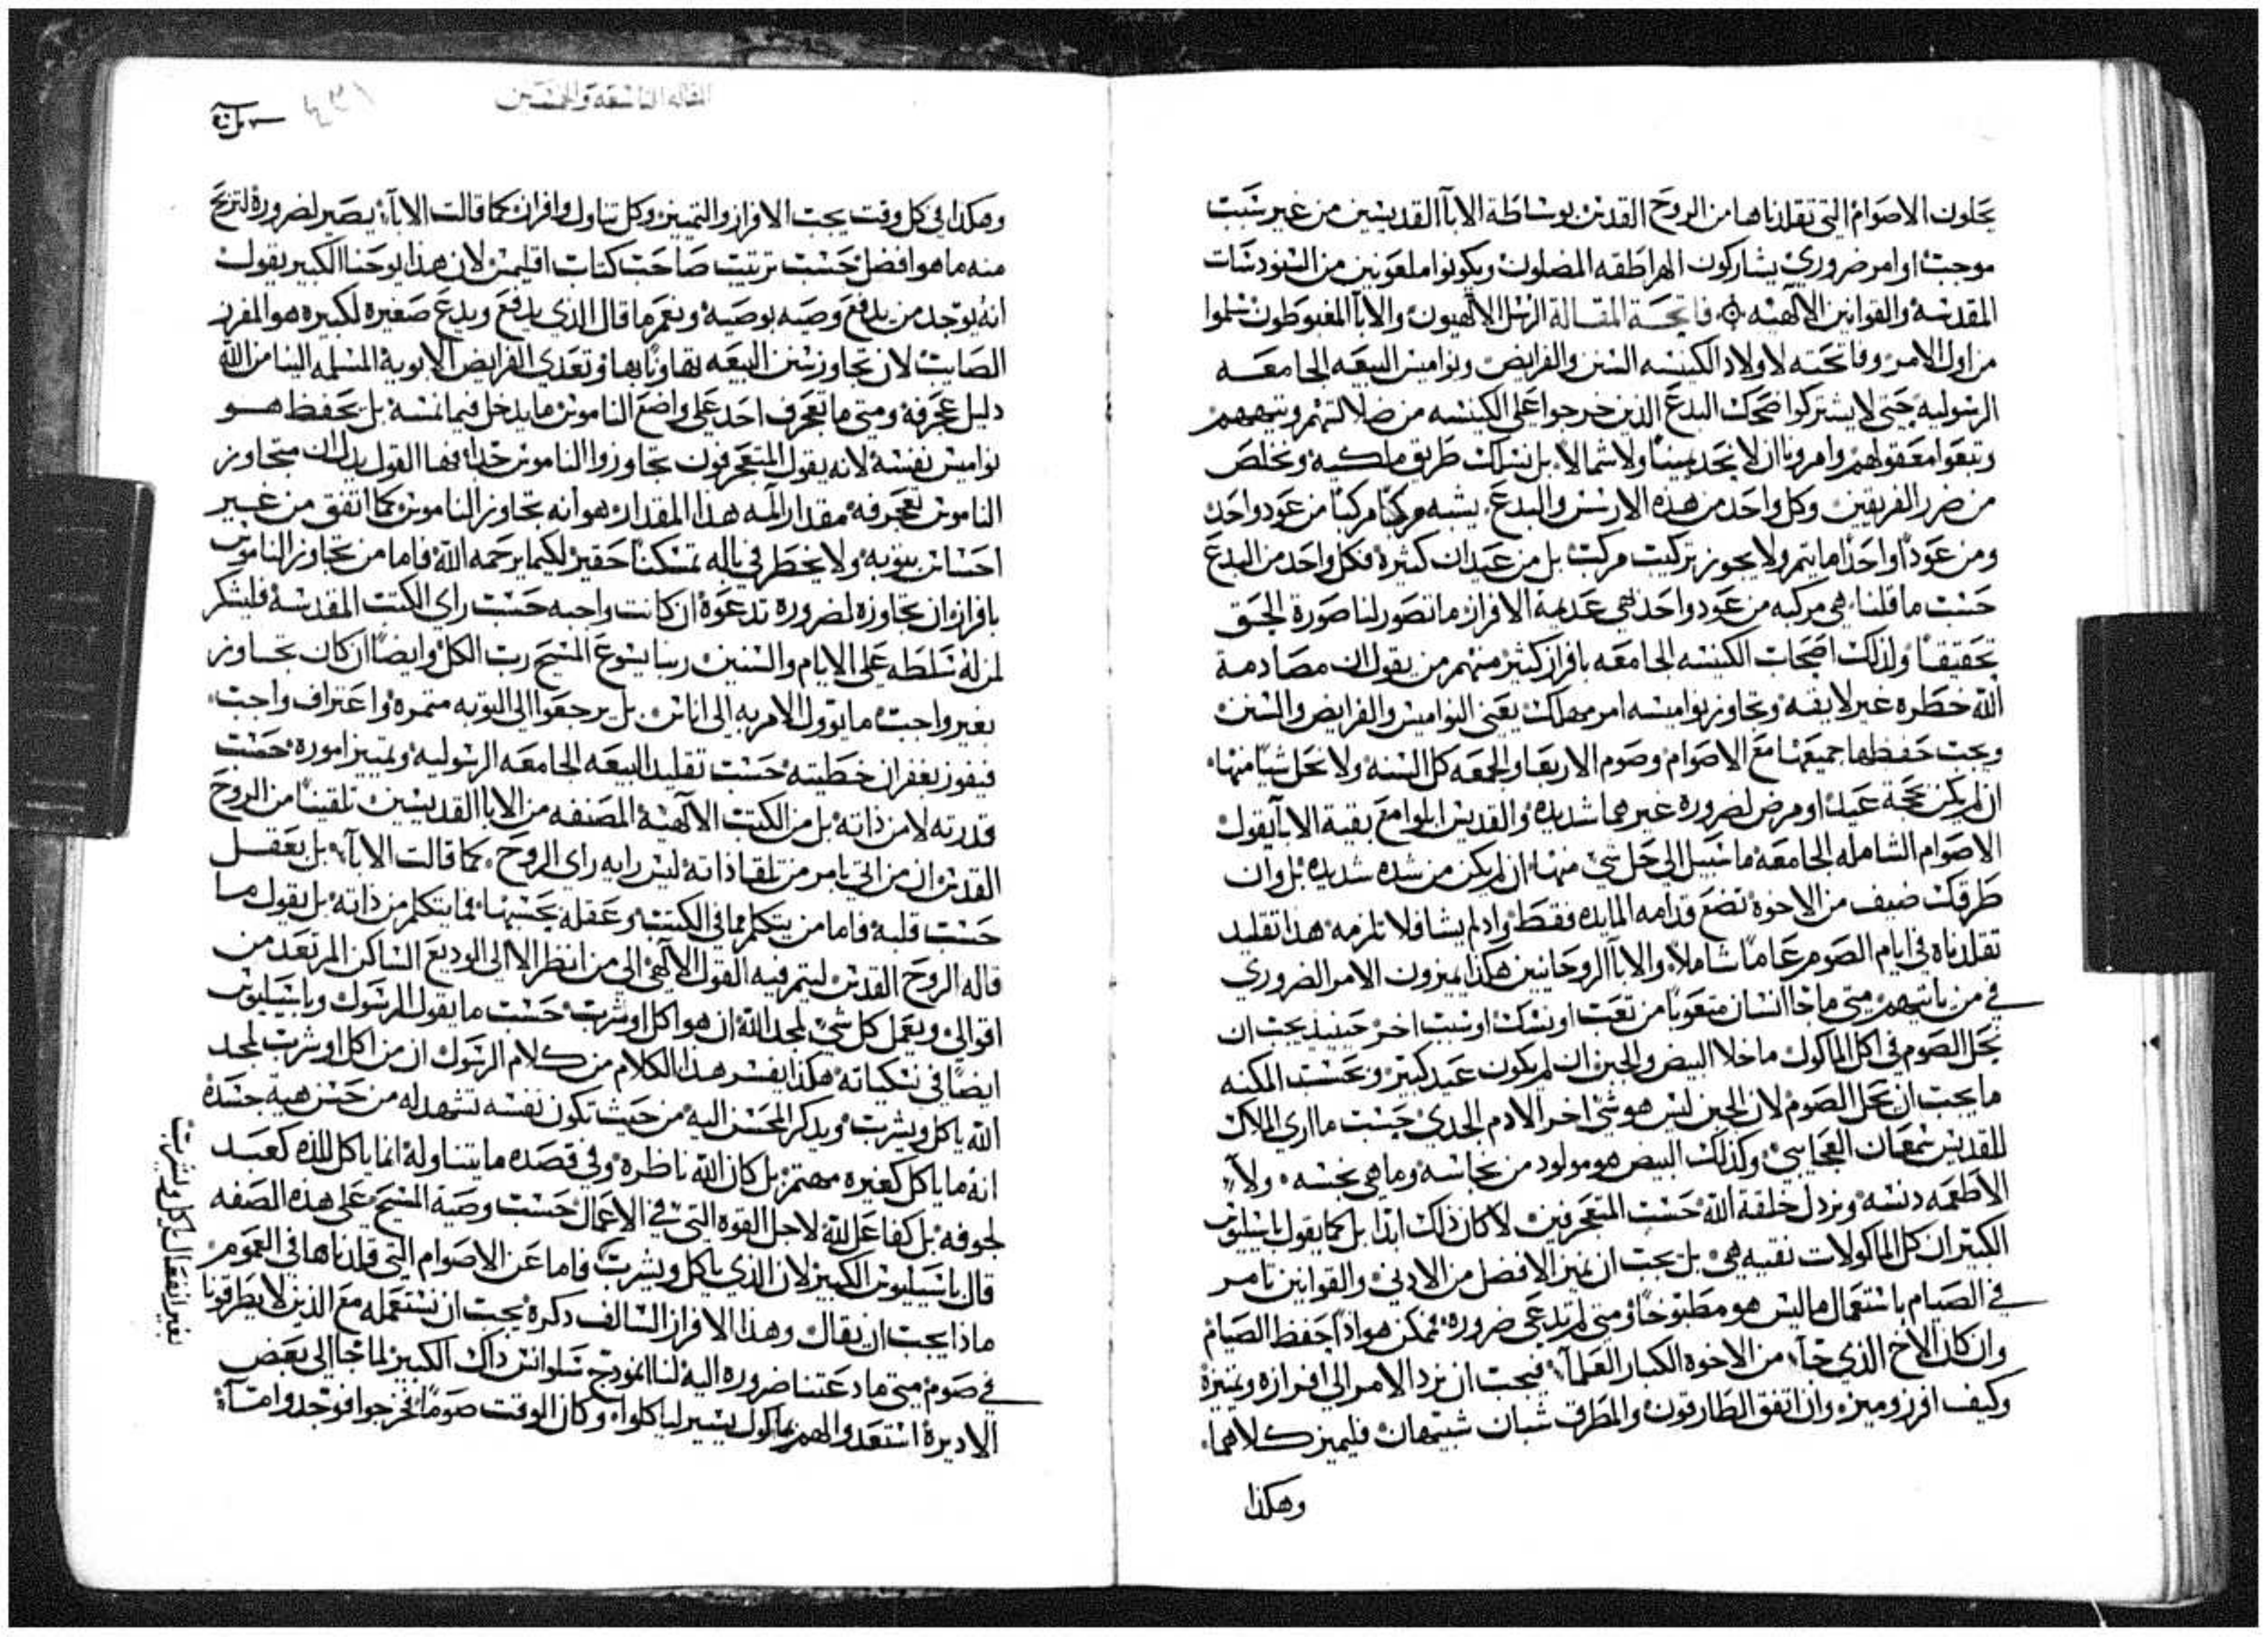 يحلون الاصوام التي تقلدناها من الروح القدس بوساطة الابا القديسين من غير سبب
موجب او امر ضروري يشاركون الهراطقه المضلون ويكونوا ملعونين من السنودسات
المقدسه والقوانين الالهيه فاتحة المقالة الرسل الالهيون والابا المغبوطون سلموا
من اول الامر وفاتحته لاولاد الكنيسه السنن والفرايض ونواميس البيعه الجامعه
الرسوليه حتى لا يشتركوا اصحاب البدع الذين خرجوا على الكنيسه من ضلالتهم وتيههم
وتبعوا معقولهم وامرونا ان لا نحد يمينا ولا شمالا بل نسلك طريق ملكيه ونخلص
من ضرر الفريقين وكل واحد من هذه الارسس والبدع يشبه مركبا مركبا من عود واحد
ومن عودا واحدا ما يتم ولا يجوز تركيب مركب بل من عيدان كثيرة فكل واحد من البدع
حسب ما قلنا هي مركبه من عود واحد هي عديمة الافراز ما تصور لنا صورة الحق
تحقيقا ولذلك اصحاب الكنيسه الجامعه بافراز كثير منهم من يقول ان مصادمة
الله خطره غير لايقه وتجاوز نواميسه امر مهلك يعني النواميس والفرايض والسنن
ويجب حفظها جميعها مع الاصوام وصوم الاربعا والجمعه كل السنه ولا نحل شيا منها
ان لم يكن بحجة عيد او مرض لضرورة غيرهما شديده والقديس ايلوا مع بقية الابا يقول
الاصوام الشامله الجامعه ما سبيل الى حل شي منها ان لم يكن من شده شديده بل وان
طرقك ضيف من الاخوة تضع قدامه المايده فقط واد لم يشا فلا تلزمه هذا تقليد
تقلدناه في ايام الصوم عاما شاملا والابا الروحانيين هكذا يميزون الامر الضروري
في من ياتيهم متى ما جا انسان متعوبا من تعب او نسك او سبب اخر حينيذ يجب ان
نحل الصوم في اكل الماكول ما خلا البيض والجبن ان لم يكون عيد كبير وبحسب المكنه
ما يجب ان نحل الصوم لان الجبن ليس هو شي اخر الا دم الجدي حسب ما اري الملاك
للقديس سمعان العجايبي وكذلك البيض هو مولود من نجاسه وما هي نجسه ولا
الاطعمه دنسه ونردل خلقة الله حسب المتعجرفين لا كان ذلك ابدا بل كما يقول باسيليوس
الكبير ان كل الماكولات نقيه هي بل يجب ان نميز الافضل من الادنى والقوانين تامر
في الصيام باستعمال ما ليس هو مطبوخا ومتى لم تدعى ضروره فممكن هو ادا حفظ الصيام
وان كان الاخ الذي جا من الاخوة الكبار العلما فيجب ان نرد الامر الى افرازه وتميزه
وكيف افرز وميز وان اتفق الطارقون والمطرق شبان شبيهان فليميز كلاهما
وهكذا
المقاله التاسعه والخمسين
وهكذا في كل وقت يجب الافراز والتمييز وكل تناول وافراز كما قالت الابا يصير لضرورة لتربح
منه ما هو افضل حسب ترتيب صاحب كتاب اقليمس لان هذا يوحنا الكبير يقول
انه يوجد من يدفع وصيه بوصيه ونعم ما قال الذي يدفع ويدع صغيره لكبيره هو المفرز
الصايب لان تجاوز سنن البيعه تهاونا بها وتعدي الفرايض الابويه المسلمه الينا من الله
دليل عجرفه ومتى ما تعجرف احد على واضع الناموس ما يدخل فيما نسه بل يحفظ هو
نواميس نفسه لانه يقول المتعجرفون تجاوزوا الناموس جدا فهدا القول يدل ان متجاوز
الناموس تعجرفه مقدار المه هذا المقدار هو انه تجاوز الناموس كما اتفق من غير
احساس بتوبه ولا يخطر في باله تمسكنا حقير لكيما يرحمه الله فاما من تجاوز الناموس
بافراز ان تجاوزه لضروره تدعوه ان كانت واجبه حسب راي الكتب المقدسه فليشكر
لمن له سلطه على الايام والسنين ربنا يسوع المسيح رب الكل وايضا ان كان تجاوز
بغير واجب ما يوول الامر به الى اناس بل يرجعوا الى التوبه متمره واعتراف واجب
فيفوز بغفران خطيته حسب تقليد البيعه الجامعه الرسوليه وتمييز اموره حسب
قدرته لا من ذاته بل من الكتب الالهيه المصنفه من الابا القديسين تلقينا من الروح
القدس ان من اتي يامر من تلقا ذاته ليس رايه راي الروح كما قالت الابا بل بعقل
حسب قلبه فاما من يتكلم مما في الكتب وعقله بحسبها فما يتكلم من ذاته بل يقول ما
قاله الروح القدس ليتم فيه القول الالهي الى من انظر الا الى الوديع الساكن المرتعد من
اقوالي ويعمل كل شي لمجد الله ان هو اكل او شرب حسب ما يقول الرسول وباسيليوس
ايضا في نسكياته هكذا يفسر هذا الكلام من كلام الرسول ان من اكل او شرب لمجد
الله ياكل ويشرب ويدكر المحسن اليه من حيث تكون نفسه تشهد له من حسن هية جسده
انه ما ياكل كغيره مهتم بل كان الله ناظره وفي قصده ما يتناوله انما ياكل للذه كعبد
لجوفه بل كفاعل لله لاجل القوه التي في الاعمال حسب وصية المسيح على هذه الصفه
قال باسيليوس الكبير لان الذي ياكل ويشرب فاما عن الاصوام التي قلدناها في العموم
ماذا يجب ان يقال وهذا الافراز السالف دكره يجب ان نستعمله مع الذين لا يطرقونا
في صوم متى ما دعتنا ضروره اليه لنا نمودج سلوانس داك الكبير لما جا الى بعض
الاديرة استعدوا لهم بماكول يسير لياكلوا وكان الوقت صوما فخرجوا فوجدوا مآ
بغير انفعال ياكل ويشرب